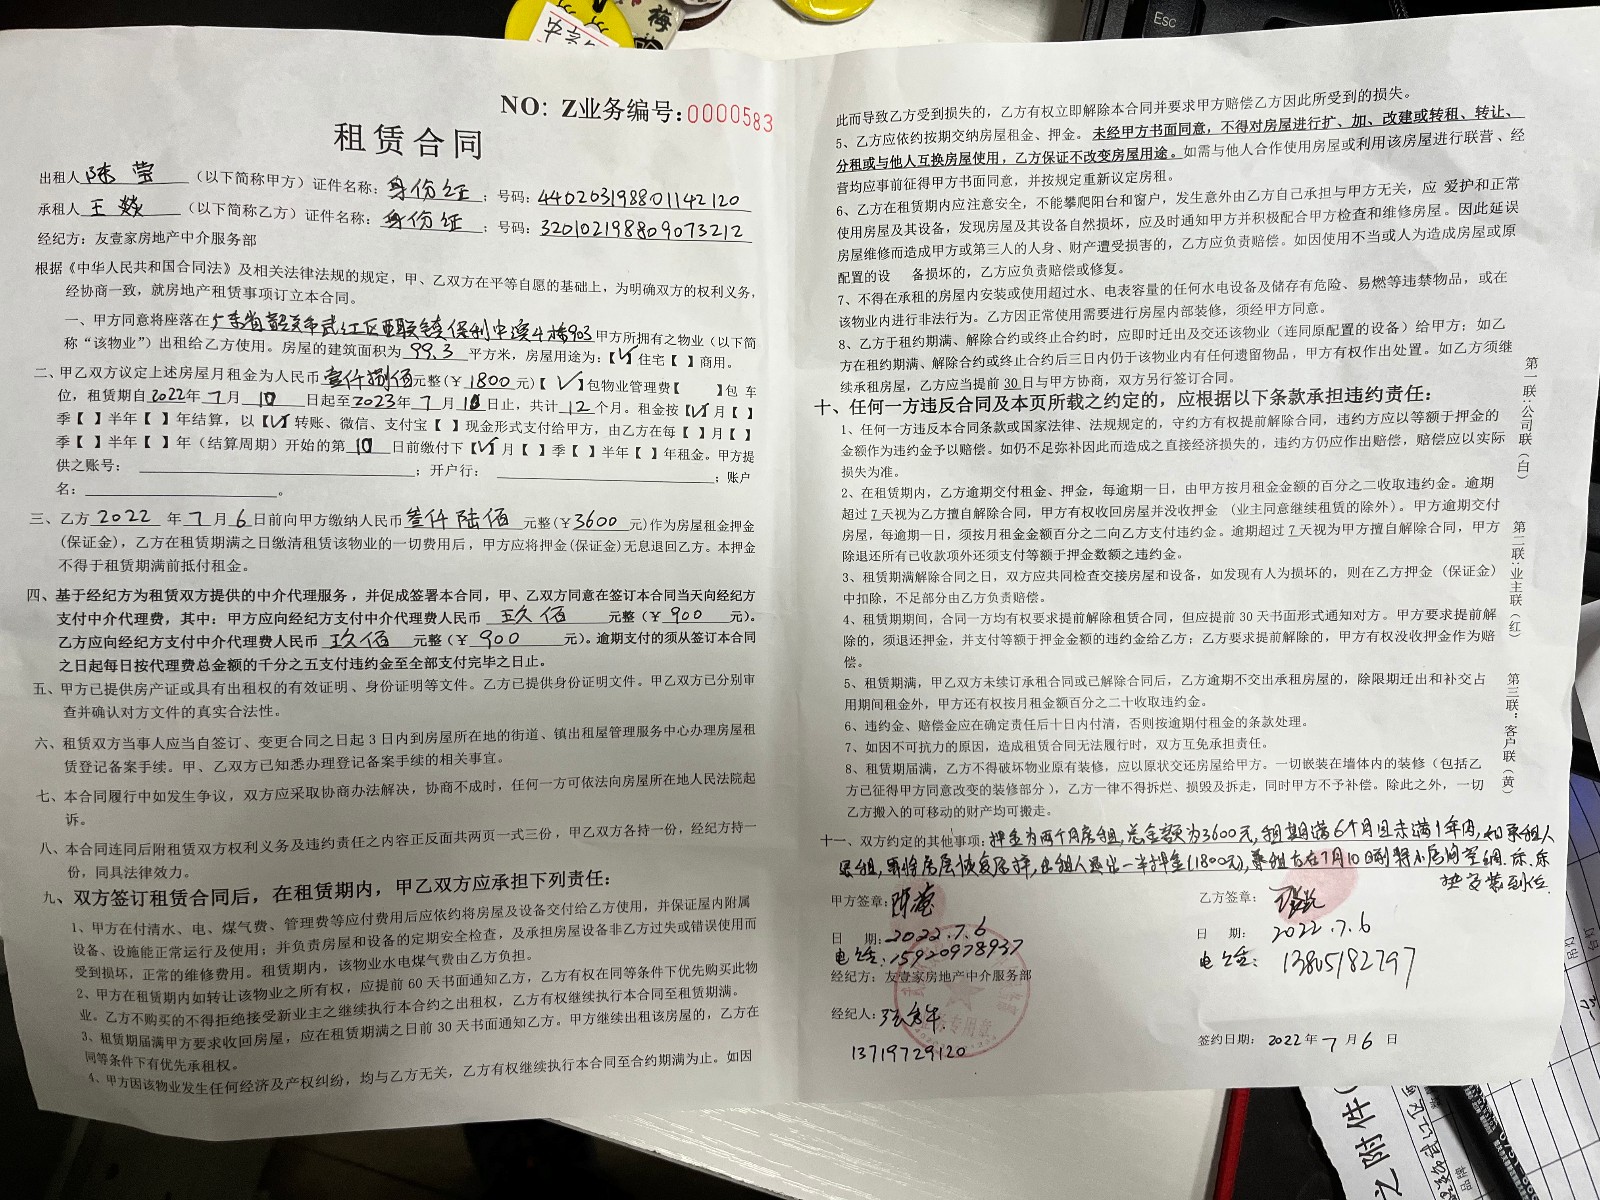 NO: Z业务编号:0000583
租赁合同
出租人 陈莹 (以下简称甲方) 证件名称: 身份证 ; 号码: 440203198801142120
承租人 王燚 (以下简称乙方) 证件名称: 身份证 ; 号码: 320102198809073212
经纪方: 友壹家房地产中介服务部
根据《中华人民共和国合同法》及相关法律法规的规定,甲、乙双方在平等自愿的基础上,为明确双方的权利义务,
经协商一致,就房地产租赁事项订立本合同。
一、甲方同意将座落在 广东省韶关市武江区西联镇保利中溪4栋903 甲方所拥有之物业(以下简
称“该物业”)出租给乙方使用。房屋的建筑面积为 99.3 平方米,房屋用途为:【√】住宅【 】商用。
二、甲乙双方议定上述房屋月租金为人民币 壹仟捌佰 元整(¥ 1800 元)【 √】包物业管理费【 】包 车
位,租赁期自2022年 7 月 10 日起至2023年 7 月 10 日止,共计 12 个月。租金按【√】月【 】
季【 】半年【 】年结算,以【√】转账、微信、支付宝【 】现金形式支付给甲方,由乙方在每【 】月【 】
季【 】半年【 】年(结算周期)开始的第 10 日前缴付下【√】月【 】季【 】半年【 】年租金。甲方提
供之账号: ;开户行: ;账户
名: 。
三、乙方 2022 年 7 月 6 日前向甲方缴纳人民币 叁仟陆佰 元整(¥3600 元)作为房屋租金押金
(保证金),乙方在租赁期满之日缴清租赁该物业的一切费用后,甲方应将押金(保证金)无息退回乙方。本押金
不得于租赁期满前抵付租金。
四、基于经纪方为租赁双方提供的中介代理服务,并促成签署本合同,甲、乙双方同意在签订本合同当天向经纪方
支付中介代理费,其中:甲方应向经纪方支付中介代理费人民币 玖佰 元整(¥ 900 元)。
乙方应向经纪方支付中介代理费人民币 玖佰 元整(¥ 900 元)。逾期支付的须从签订本合同
之日起每日按代理费总金额的千分之五支付违约金至全部支付完毕之日止。
五、甲方已提供房产证或具有出租权的有效证明、身份证明等文件。乙方已提供身份证明文件。甲乙双方已分别审
查并确认对方文件的真实合法性。
六、租赁双方当事人应当自签订、变更合同之日起 3 日内到房屋所在地的街道、镇出租屋管理服务中心办理房屋租
赁登记备案手续。甲、乙双方已知悉办理登记备案手续的相关事宜。
七、本合同履行中如发生争议,双方应采取协商办法解决,协商不成时,任何一方可依法向房屋所在地人民法院起
诉。
八、本合同连同后附租赁双方权利义务及违约责任之内容正反面共两页一式三份,甲乙双方各持一份,经纪方持一
份,同具法律效力。
九、双方签订租赁合同后,在租赁期内,甲乙双方应承担下列责任:
1、甲方在付清水、电、煤气费、管理费等应付费用后应依约将房屋及设备交付给乙方使用,并保证屋内附属
设备、设施能正常运行及使用;并负责房屋和设备的定期安全检查,及承担房屋设备非乙方过失或错误使用而
受到损坏,正常的维修费用。租赁期内,该物业水电煤气费由乙方负担。
2、甲方在租赁期内如转让该物业之所有权,应提前 60 天书面通知乙方,乙方有权在同等条件下优先购买此物
业。乙方不购买的不得拒绝接受新业主之继续执行本合约之出租权,乙方有权继续执行本合同至租赁期满。
3、租赁期届满甲方要求收回房屋,应在租赁期满之日前 30 天书面通知乙方。甲方继续出租该房屋的,乙方在
同等条件下有优先承租权。
4、甲方因该物业发生任何经济及产权纠纷,均与乙方无关,乙方有权继续执行本合同至合约期满为止。如因
此而导致乙方受到损失的,乙方有权立即解除本合同并要求甲方赔偿乙方因此所受到的损失。
5、乙方应依约按期交纳房屋租金、押金。未经甲方书面同意,不得对房屋进行扩、加、改建或转租、转让、
分租或与他人互换房屋使用,乙方保证不改变房屋用途。如需与他人合作使用房屋或利用该房屋进行联营、经
营均应事前征得甲方书面同意,并按规定重新议定房租。
6、乙方在租赁期内应注意安全,不能攀爬阳台和窗户,发生意外由乙方自己承担与甲方无关,应 爱护和正常
使用房屋及其设备,发现房屋及其设备自然损坏,应及时通知甲方并积极配合甲方检查和维修房屋。因此延误
房屋维修而造成甲方或第三人的人身、财产遭受损害的,乙方应负责赔偿。如因使用不当或人为造成房屋或原
配置的设 备损坏的,乙方应负责赔偿或修复。
7、不得在承租的房屋内安装或使用超过水、电表容量的任何水电设备及储存有危险、易燃等违禁物品,或在
该物业内进行非法行为。乙方因正常使用需要进行房屋内部装修,须经甲方同意。
8、乙方于租约期满、解除合约或终止合约时,应即时迁出及交还该物业(连同原配置的设备)给甲方;如乙
方在租约期满、解除合约或终止合约后三日内仍于该物业内有任何遗留物品,甲方有权作出处置。如乙方须继
续承租房屋,乙方应当提前 30 日与甲方协商,双方另行签订合同。
十、任何一方违反合同及本页所载之约定的,应根据以下条款承担违约责任:
1、任何一方违反本合同条款或国家法律、法规规定的,守约方有权提前解除合同,违约方应以等额于押金的
金额作为违约金予以赔偿。如仍不足弥补因此而造成之直接经济损失的,违约方仍应作出赔偿,赔偿应以实际
损失为准。
2、在租赁期内,乙方逾期交付租金、押金,每逾期一日,由甲方按月租金金额的百分之二收取违约金。逾期
超过 7 天视为乙方擅自解除合同,甲方有权收回房屋并没收押金 (业主同意继续租赁的除外)。甲方逾期交付
房屋,每逾期一日,须按月租金金额百分之二向乙方支付违约金。逾期超过 7 天视为甲方擅自解除合同,甲方
除退还所有已收款项外还须支付等额于押金数额之违约金。
3、租赁期满解除合同之日,双方应共同检查交接房屋和设备,如发现有人为损坏的,则在乙方押金 (保证金)
中扣除,不足部分由乙方负责赔偿。
4、租赁期期间,合同一方均有权要求提前解除租赁合同,但应提前 30 天书面形式通知对方。甲方要求提前解
除的,须退还押金,并支付等额于押金金额的违约金给乙方;乙方要求提前解除的,甲方有权没收押金作为赔
偿。
5、租赁期满,甲乙双方未续订承租合同或已解除合同后,乙方逾期不交出承租房屋的,除限期迁出和补交占
用期间租金外,甲方还有权按月租金额百分之二十收取违约金。
6、违约金、赔偿金应在确定责任后十日内付清,否则按逾期付租金的条款处理。
7、如因不可抗力的原因,造成租赁合同无法履行时,双方互免承担责任。
8、租赁期届满,乙方不得破坏物业原有装修,应以原状交还房屋给甲方。一切嵌装在墙体内的装修(包括乙
方已征得甲方同意改变的装修部分),乙方一律不得拆烂、损毁及拆走,同时甲方不予补偿。除此之外,一切
乙方搬入的可移动的财产均可搬走。
十一、双方约定的其他事项: 押金为两个月房租,总金额为3600元,租期满6个月且未满1年内,如承租人
退租,需将房屋恢复原样,出租人退出一半押金(1800元),
甲方签章: 陈莹
乙方签章: 王燚
日 期: 2022.7.6
日 期: 2022.7.6
电话: 15920978937
电话: 13805182797
经纪方: 友壹家房地产中介服务部
经纪人:
13719729120
签约日期: 2022年 7 月 6 日
第一联:公司联(白)
第二联:业主联(红)
第三联:客户联(黄)
Esc
梅
之附件(